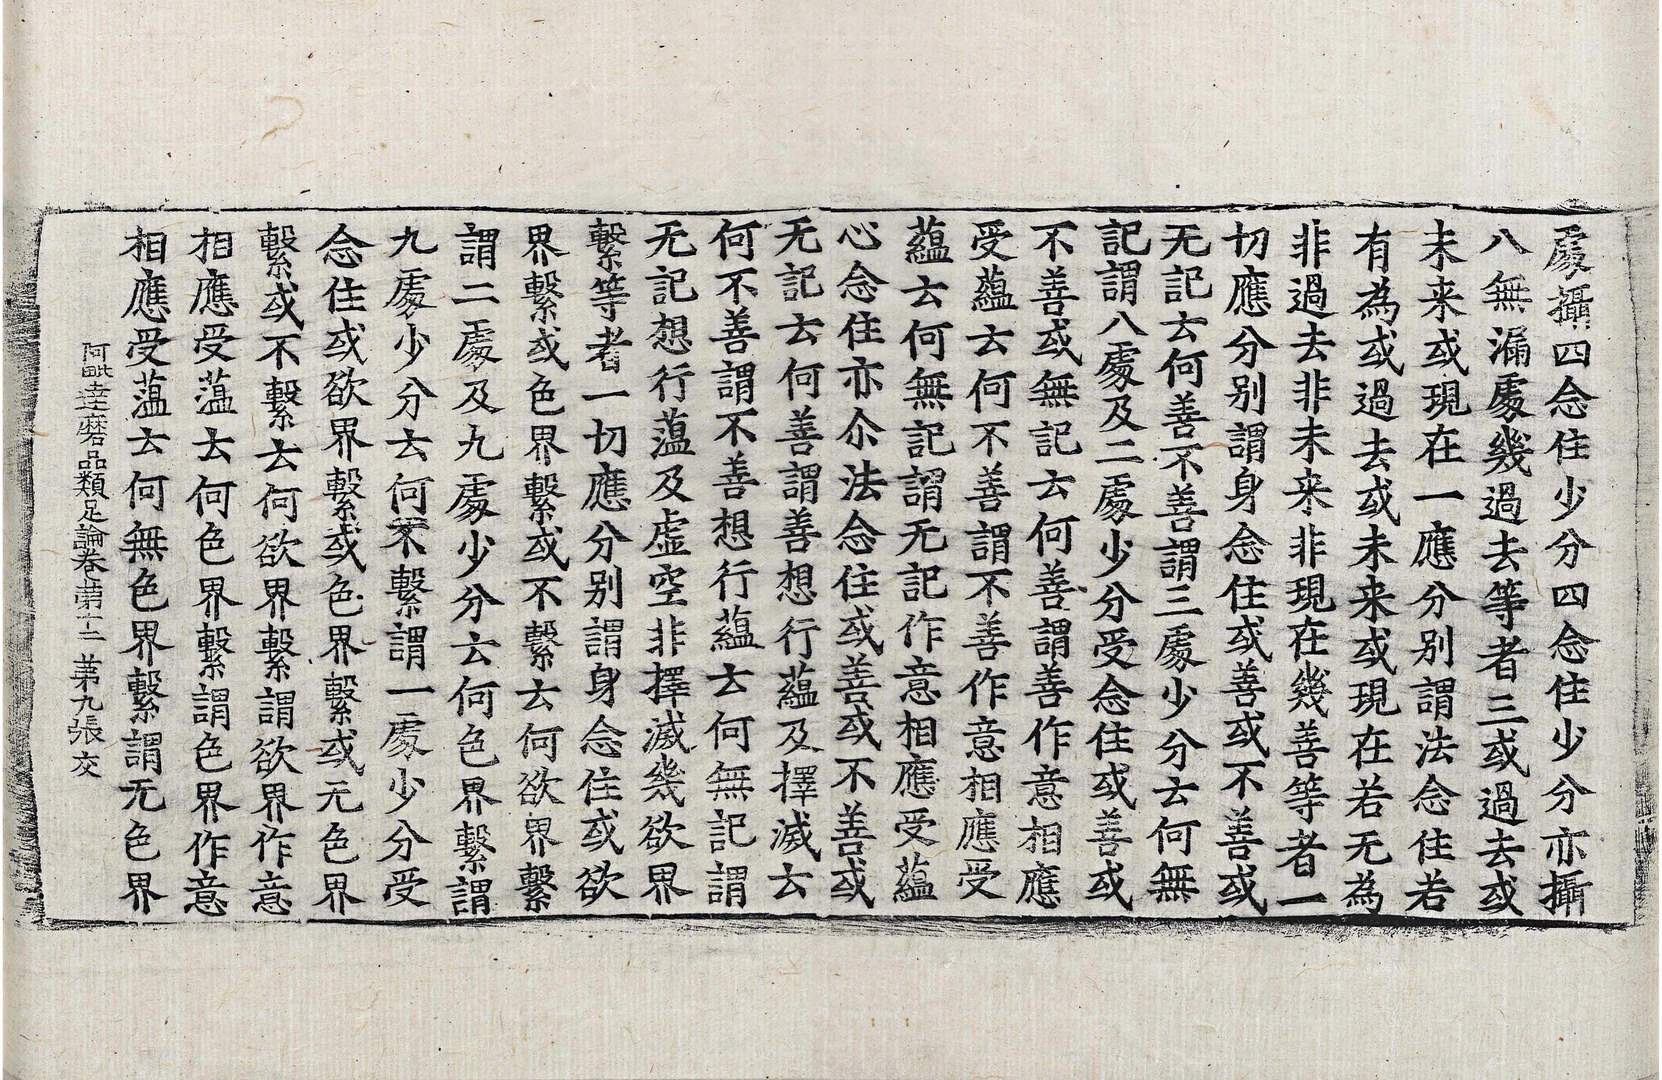 處攝四念住少分四念住少分亦攝
八無漏處幾過去等者三或過去或
未来或現在一應分別謂法念住若
有為或過去或未来或現在若无為
非過去非未来非現在幾善等者一
切應分別謂身念住或善或不善或
无記云何善不善謂三處少分云何無
記謂八處及二處少分受念住或善或
不善或無記云何善謂善作意相應
受蘊云何不善謂不善作意相應受
蘊云何無記謂无記作意相應受蘊
心念住亦尒法念住或善或不善或
无記云何善謂善想行蘊及擇滅云
何不善謂不善想行蘊云何無記謂
无記想行薀及虛空非擇滅幾欲界
繫等者一切應分別謂身念住或欲
界繫或色界繫或不繫云何欲界繫
謂二處及九處少分云何色界繫謂
九處少分云何不繫謂一處少分受
念住或欲界繫或色界繫或无色界
繫或不繫云何欲界繫謂欲界作意
相應受薀云何色界繫謂色界作意
相應受薀云何無色界繫謂无色界
阿毗達磨品類足論卷第十二 第九張 交